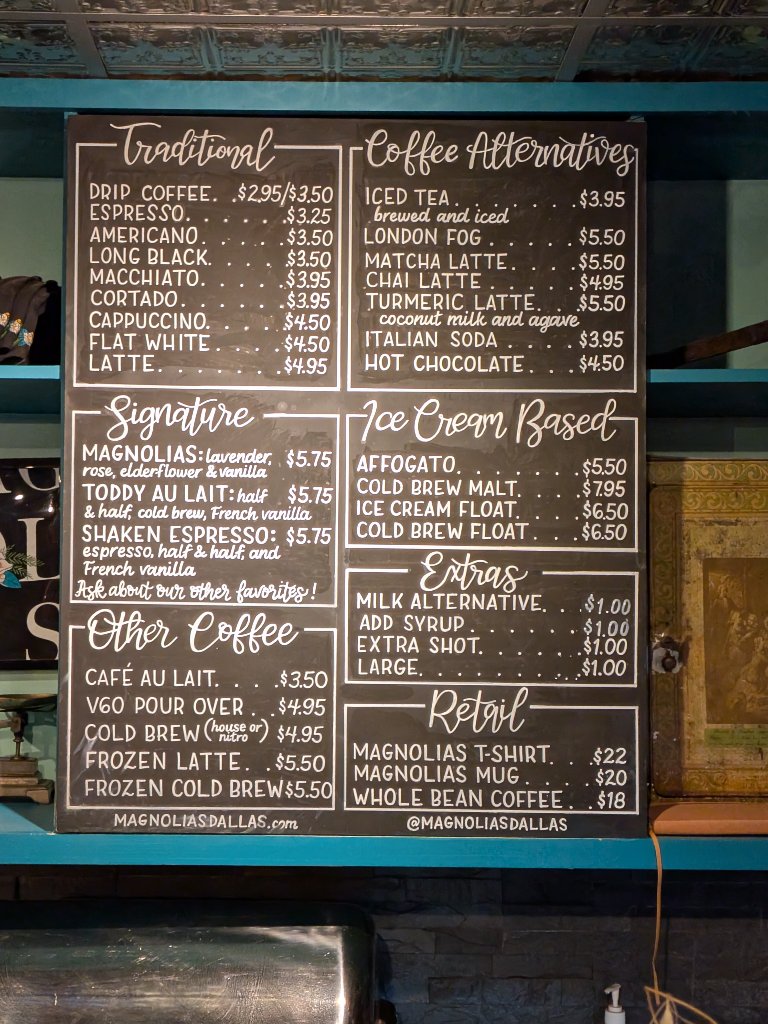 Traditional
DRIP COFFEE. .$2.95/$3.50
ESPRESSO. . . . . .$3.25
AMERICANO. . . . .$3.50
LONG BLACK. . . . .$3.50
MACCHIATO. . . . .$3.95
CORTADO. . . . . .$3.95
CAPPUCCINO. . . . .$4.50
FLAT WHITE . . . .$4.50
LATTE. . . . . . . .$4.95
Signature
MAGNOLIAS: lavender, $5.75
rose, elderflower & vanilla
TODDY AU LAIT: half $5.75
& half, cold brew, French vanilla
SHAKEN ESPRESSO: $5.75
espresso, half & half, and
French vanilla
Ask about our other favorites!
Other Coffee
CAFÉ AU LAIT. . . .$3.50
V60 POUR OVER . .$4.95
COLD BREW (house or nitro) $4.95
FROZEN LATTE. . .$5.50
FROZEN COLD BREW $5.50
MAGNOLIASDALLAS.com
Coffee Alternatives
ICED TEA. . . . . . . .$3.95
brewed and iced
LONDON FOG . . . . .$5.50
MATCHA LATTE. . . .$5.50
CHAI LATTE . . . . .$4.95
TURMERIC LATTE. . .$5.50
coconut milk and agave
ITALIAN SODA . . . .$3.95
HOT CHOCOLATE . . .$4.50
Ice Cream Based
AFFOGATO. . . . . . .$5.50
COLD BREW MALT. . . .$7.95
ICE CREAM FLOAT. . . .$6.50
COLD BREW FLOAT. . . .$6.50
Extras
MILK ALTERNATIVE. . .$1.00
ADD SYRUP . . . . . .$1.00
EXTRA SHOT. . . . . .$1.00
LARGE. . . . . . . . .$1.00
Retail
MAGNOLIAS T-SHIRT. . .$22
MAGNOLIAS MUG. . . . .$20
WHOLE BEAN COFFEE. .$18
@MAGNOLIASDALLAS